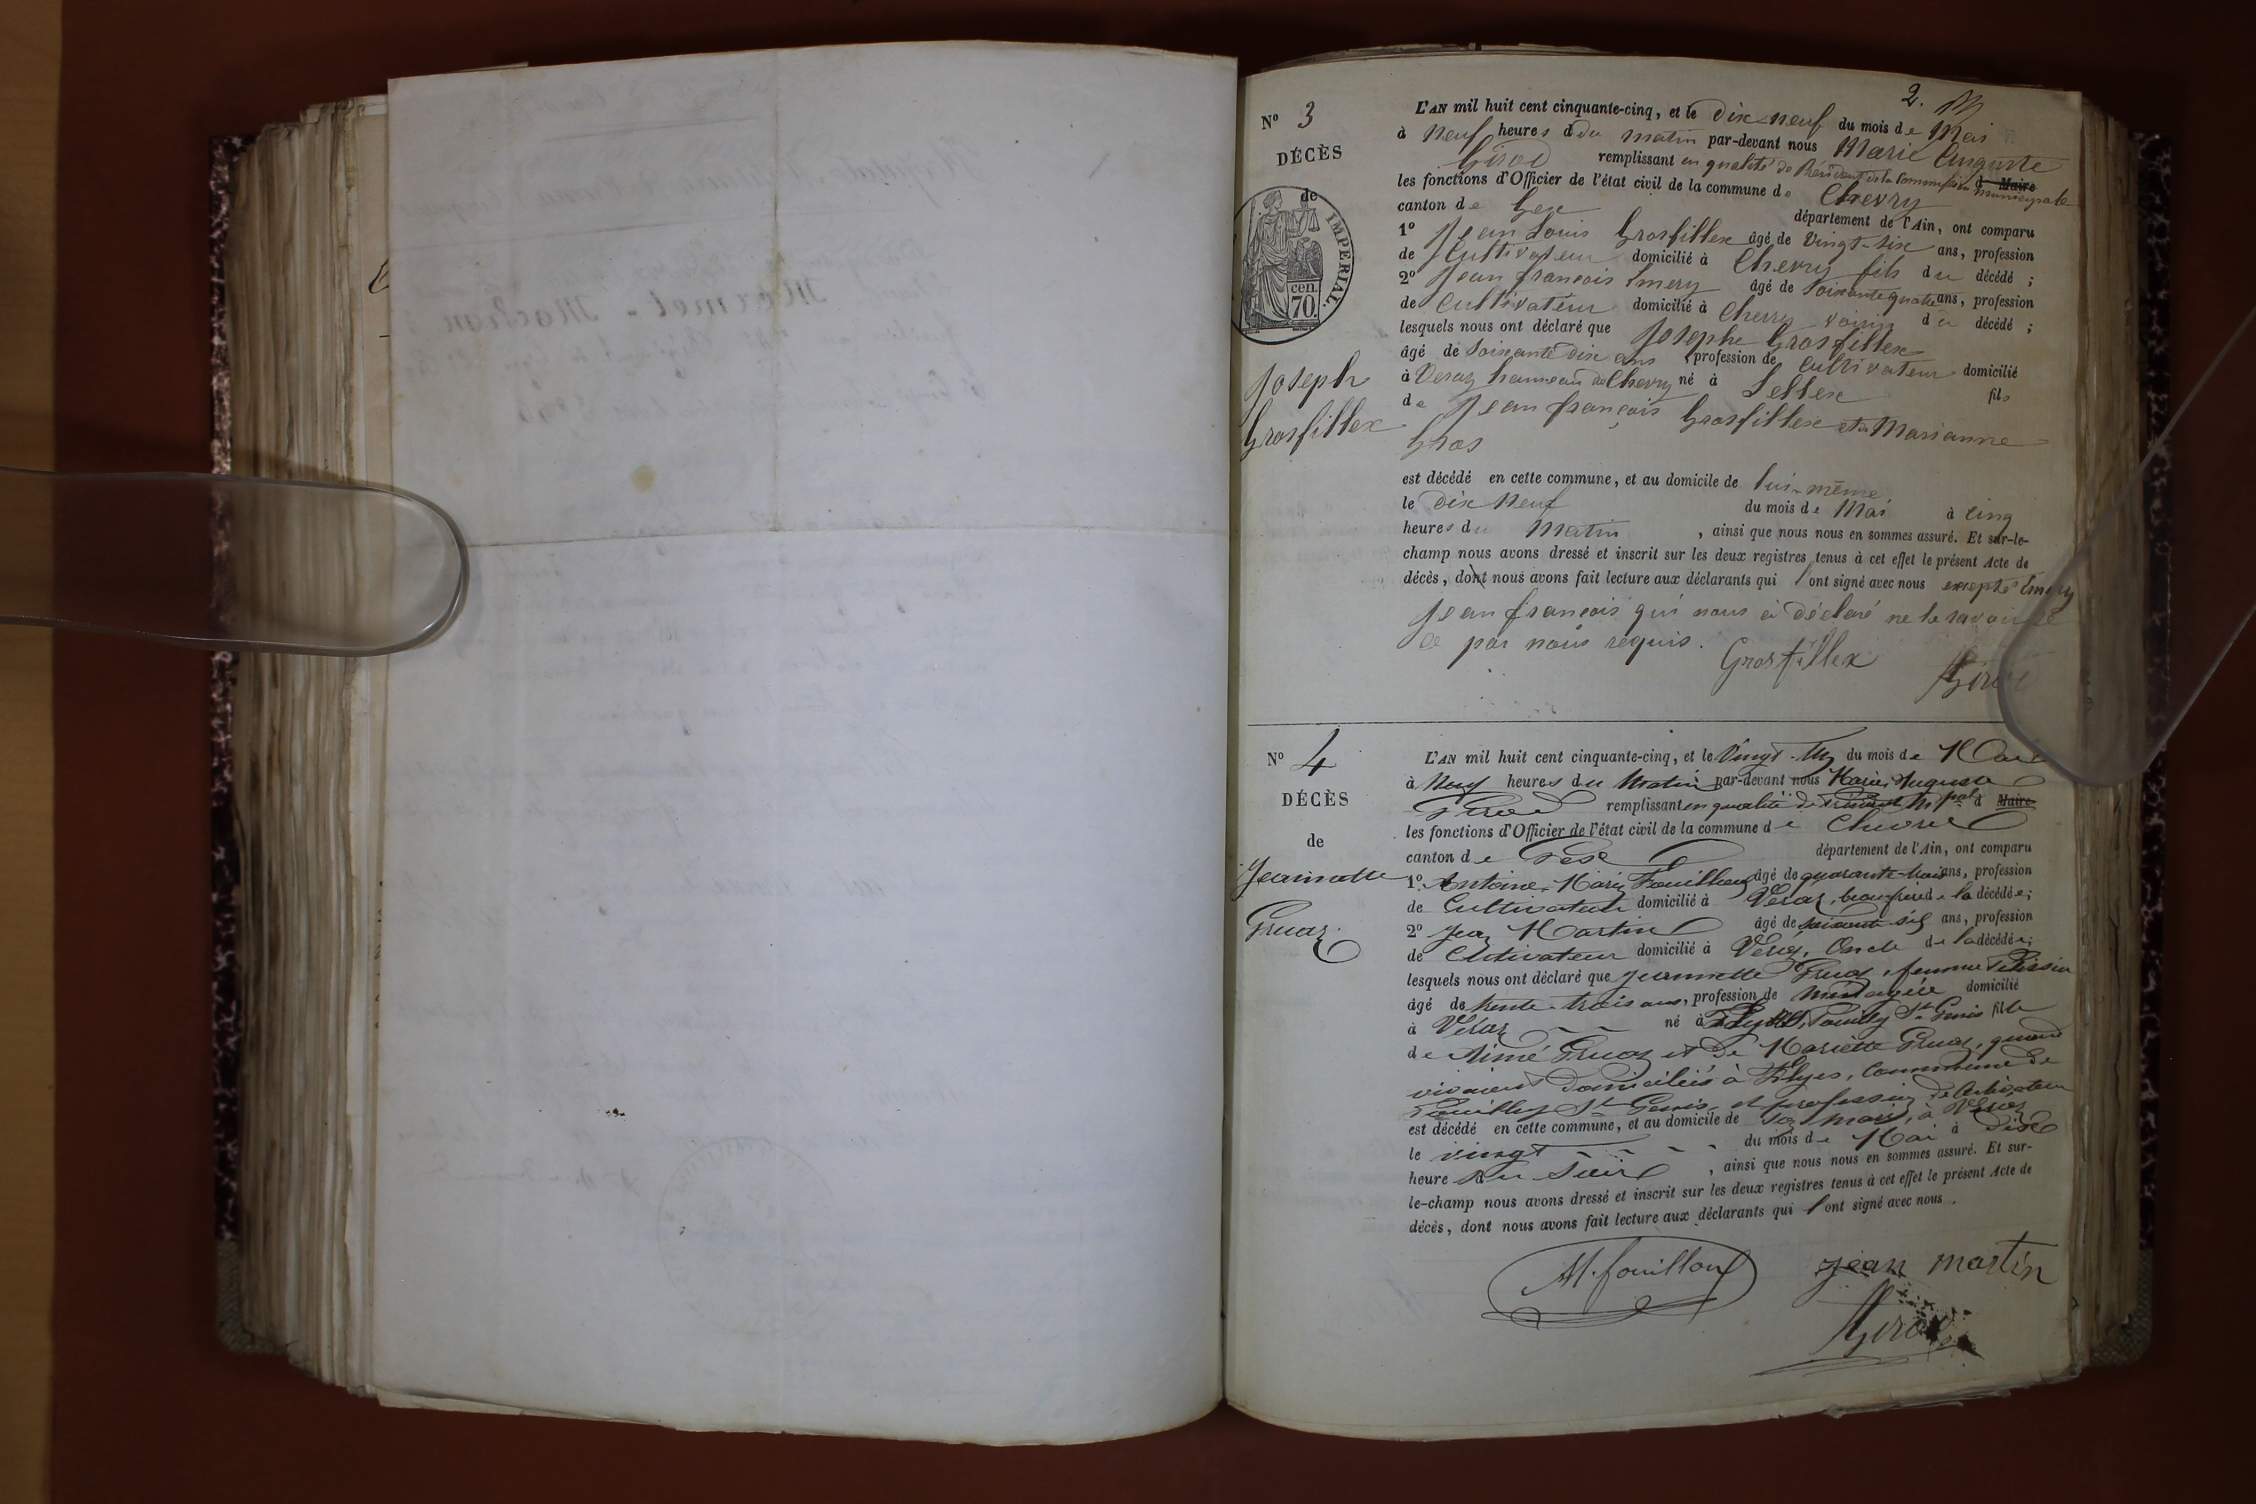 2.
Nº 3
DÉCÈS
de
IMPERIAL.
cen.
70.
Joseph
Grosfillex
L'AN mil huit cent cinquante-cinq, et le dix-neuf du mois de Mai
à neuf heures d du matin par-devant nous Marie Auguste
Girod remplissant en qualité de Président de la Commission municipale d Maire
les fonctions d'Officier de l'état civil de la commune de Chevry
canton de Gex département de l'Ain, ont comparu
1º Jean Louis Grosfillex âgé de vingt-six ans, profession
de Cultivateur domicilié à Chevry fils du décédé ;
2º Jean françois Emery âgé de soixante quatre ans, profession
de Cultivateur domicilié à Chevry voisin du décédé ;
lesquels nous ont déclaré que Josephe Grosfillex
âgé de soixante dix ans profession de cultivateur domicilié
à Veraz hameau de Chevry né à Lellex fils
de Jean françois Grosfillex et de Marianne
Gros
est décédé en cette commune, et au domicile de lui-même
le dix neuf du mois de Mai à cinq
heures du Matin , ainsi que nous nous en sommes assuré. Et sur-le-
champ nous avons dressé et inscrit sur les deux registres tenus à cet effet le présent Acte de
décès, dont nous avons fait lecture aux déclarants qui l'ont signé avec nous excepté Emery
Jean françois qui nous à déclaré ne le savoir
de par nous requis.
Grosfillex Girod
Nº 4
DÉCÈS
de
Jeannette
Gruaz
L'AN mil huit cent cinquante-cinq, et le Vingt-Un du mois de Mai
à Neuf heures du Matin par-devant nous Marie Auguste
Girod remplissant en qualité de Président Mpal d Maire
les fonctions d'Officier de l'état civil de la commune de
canton de Gex département de l'Ain, ont comparu
1º Antoine Marie Fouilloux âgé de quarante-trois ans, profession
de Cultivateur domicilié à Véraz, beau-frère de la décédée;
2º Jean Martin âgé de soixante six ans, profession
de Cultivateur domicilié à Véraz, Oncle de la décédée;
lesquels nous ont déclaré que Jeannette Gruaz, femme
âgé de trente-trois ans, profession de ménagère domicilié
à Véraz né à Pouilly St Genis fille
de Aimé Gruaz et de Mariette Gruaz, quand
vivaient domiciliés à Flyes, Commune de
Pouilly St Genis, et profession de Cultivateur
est décédé en cette commune, et au domicile de son mari, à Véraz
le vingt du mois de Mai à dix
heure du Soir , ainsi que nous nous en sommes assuré. Et sur-
le-champ nous avons dressé et inscrit sur les deux registres tenus à cet effet le présent Acte de
décès, dont nous avons fait lecture aux déclarants qui l'ont signé avec nous.
jean martin
Girod